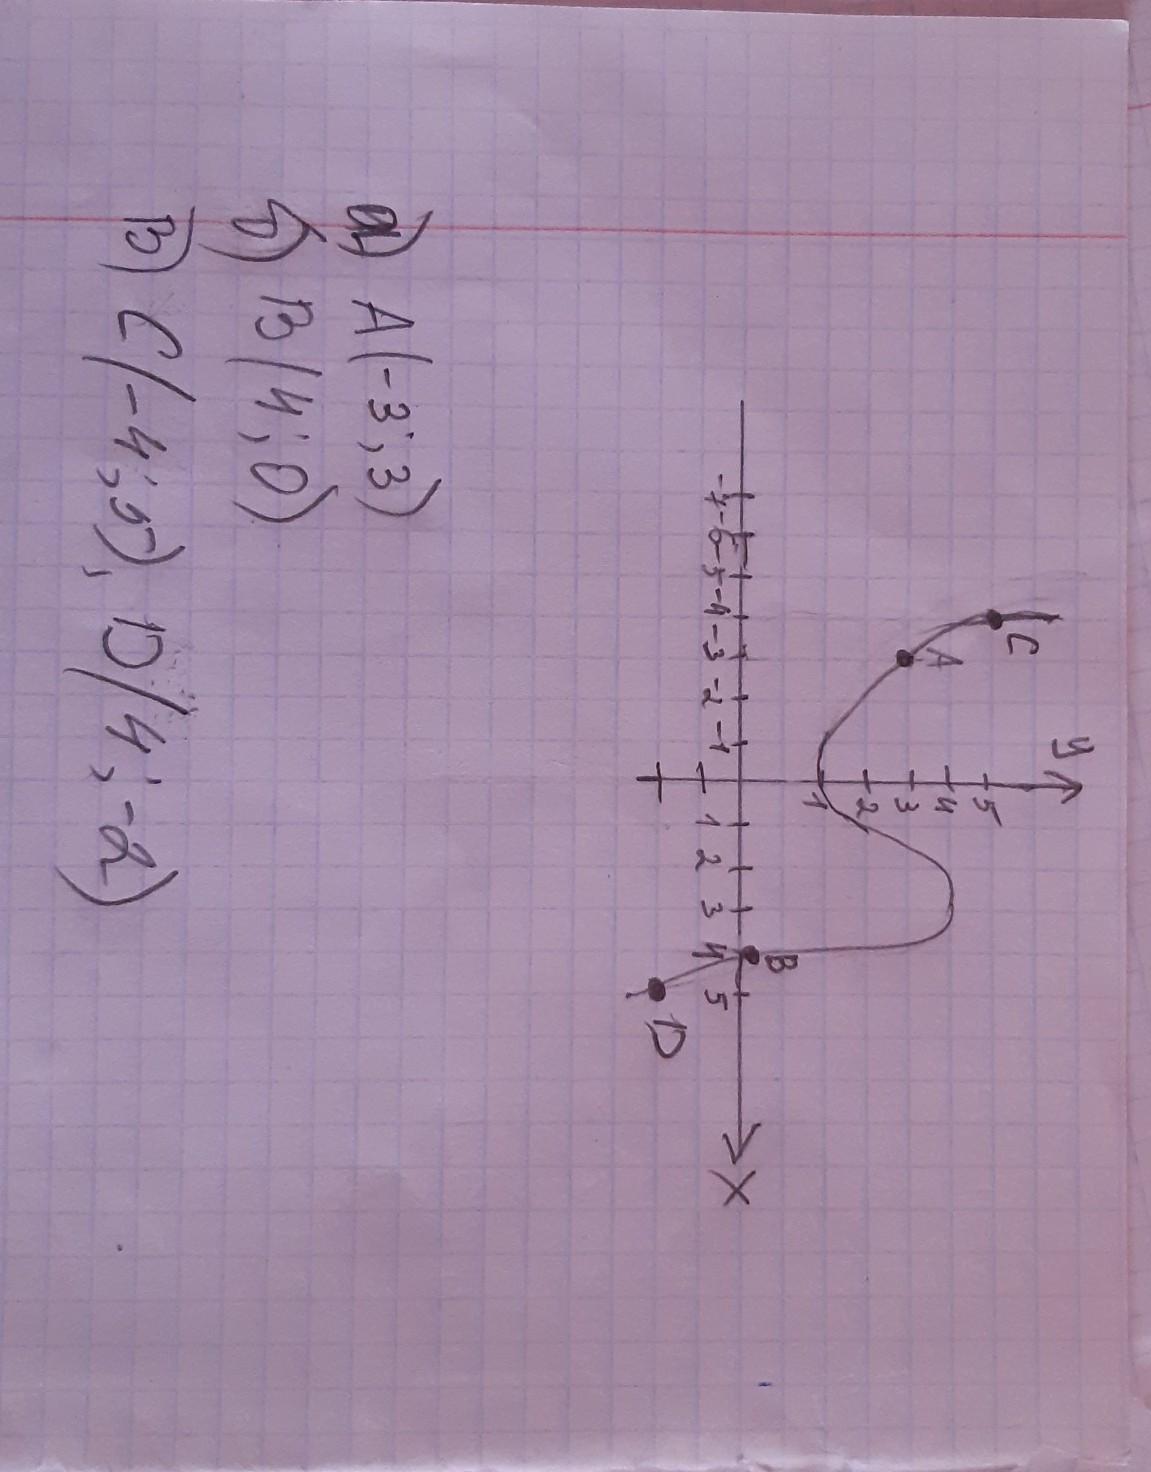 y
5
4
3
2
1
C
A
B
D
-7 -6 -5 -4 -3 -2 -1 1 2 3 4 5
X
а) A(-3; 3)
б) B(4; 0)
в) C(-4; 5), D(4; -2)